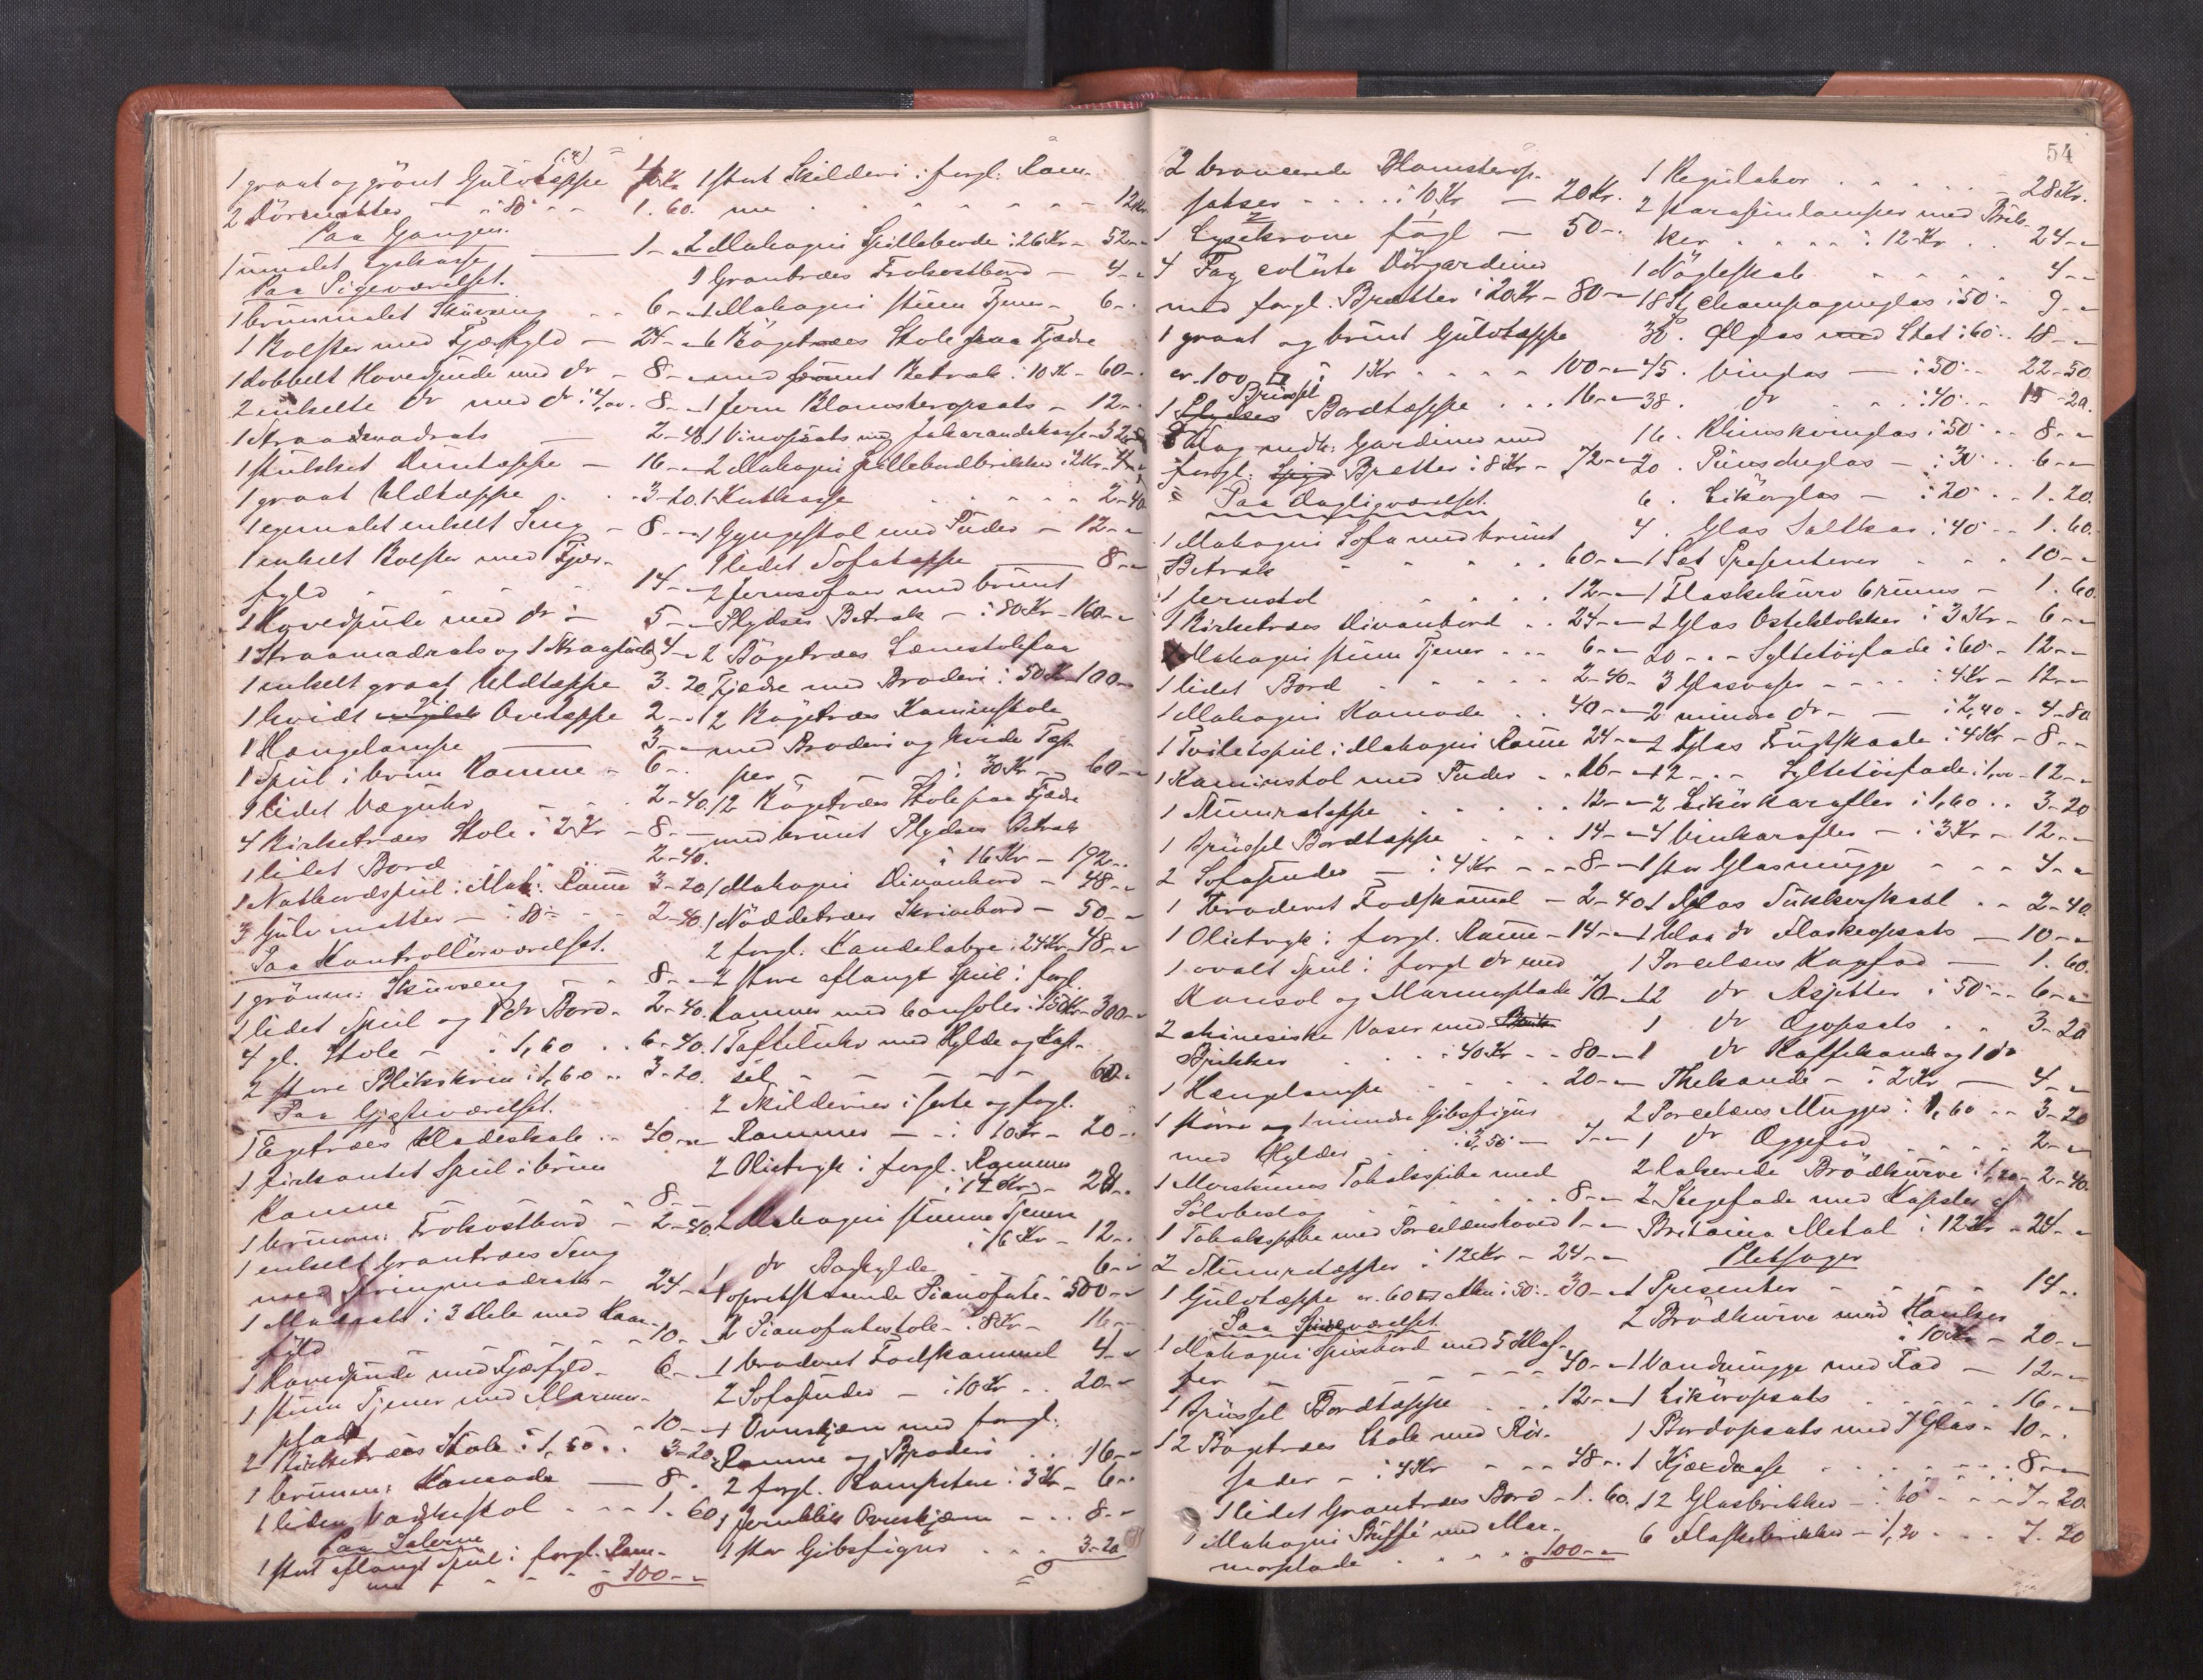 1 graat og grönt Gulvtæppe 4 Kr
2 Dörmatter - i 80 - 1.60.
Paa Gangen.
1 umalet 1-"
Paa Pigeværelset.
1 brunmalet 6-"
1 Bolster med Fjærfyld - 24-"
1 dobbelt Hovedpude med do - 8-"
2 enkelte do med do i 4,00. 8-"
1 Straamadrats - 2-40
1 stukket Duntæppe - 16-"
1 graat Uldtæppe 3-20.
1 egemalet enkelt Seng - 8-"
1 enkelt Bolster med Fjær-
fyld - 14-"
1 Hovedpude med do - 5-"
1 Straamadrats og 1 4-"
1 enkelt graat Uldtæppe 3.20
1 hvidt Overtæppe 2-"
1 Hængelampe 3-"
1 Speil i brun Ramme - 6-"
1 lidet Væguhr - 2-40.
4 Birketræes Stole i 2 Kr - 8-"
1 lidet Bord 2-40.
1 Natbordspeil i Mah. Ramme 3-20
3 Gulvmatter - i 80 - 2-40.
Paa Kontrollörværelset.
1 grönm. - 8-"
1 lidet Speil og 1 do Bord - 2-40.
4 gl. Stole - i 1,60 . . 6-40.
2 store Blikskrin i 1,60 . . 3-20.
Paa Gjæsteværelset.
1 Egetræes Klædeskab . . 40-"
1 firkantet Speil i brun
Ramme - 8-"
1 brunm. Frokostbord - 2-40.
1 enkelt Grantræes Seng
med Springmadrats - 24-"
1 Madrats i 3 Dele med Haar-
fyld 10-"
1 Hovedpude med Fjærfyld - 6-"
1 stum Tjener med Marmor-
plade 10-"
2 Birketræes Stole i 1,60 . . 3-20
1 brunm. Komode - 8-"
1 liden Vaskestol - 1.60
Paa Salerne
1 stort aflangt Speil i forgl. Ram-
me - 100-"
1 stort Skilderi i forgl. Ram-
me 12 Kr.
2 Mahogni Spilleborde i 26 Kr - 52-"
1 Grantræes Frokostbord - 4-"
1 Mahogni stum Tjener - 6-"
6 Bögetræes Stole paa Fjædre
med Betræk i 10 Kr - 60-"
1 Jern Blomsteropsats - 12-"
1 Vinopsats med Jakarandakasse - 32-"
2 Mahogni i 2 Kr - 4-"
1 2-40
1 Gyngestol med Puder - 12-"
1 lidet Sofatæppe 8-"
2 Jernsofaer med brunt
Plydses Betræk - i 80 Kr - 160-"
2 Bögetræes Lænestole paa
Fjædre med Broderi i 50 Kr - 100-"
2 Bögetræes Kaminstole
med Broderi og
i 30 Kr - 60-"
12 Bögetræes Stole paa Fjædre
med brunt Plydses Betræk
i 16 Kr - 192-"
1 Mahogni Divanbord - 48-"
1 Nöddetræes Skrivebord - 50-"
2 forgl. Kandelabre i 24 Kr - 48-"
2 store aflangt Speil i forgl.
Rammer med Consoler i 150 Kr - 300-"
1 Taffeluhr med Hylde og Kap-
sel - 60-"
2 Skilderier i sorte og forgl.
Rammer - i 10 Kr - 20-"
2 Olietryk i forgl. Rammer
i 14 Kr - 28-"
2 Mahogni stumme Tjenere
i 6 Kr - 12-"
1 do Boghylde 6-"
1 opretstaaende Pianoforte - 500-"
2 Pianofortestole - i 8 Kr - 16-"
1 broderet Fodskammel 4-"
2 Sofapuder - i 10 Kr . . 20-"
1 Ovnskjærm med forgl.
Ramme og Broderi . . 16-"
2 forgl. i 3 Kr - 6-"
1 Jernblik Ovnskjærm - 8-"
1 stor Gibsfigur . . . 3-20
54
2 broncerede Blomsterop-
satser . . . . i 10 Kr - 20 Kr.
1 Lysekrone fogl - 50-.
4 Fag colörte Dörgardiner
med forgl. Bretter i 20 Kr - 80-"
1 graat og brunt Gulvtæppe
cr. 100 i 1 Kr . . . . 100-"
Brüssel
1 Plydses Bordtæppe . . . 16-"
Fag Gardiner med
forgl. Bretter i 8 Kr - 72-"
Paa Dagligværelset
1 Mahogni Sofa med brunt
Betræk 60-"
1 Jernstol 12-"
1 Birketræes Divanbord . . 24-"
1 Mahogni stum Tjener . . . 6-"
1 lidet Bord 2-40-
1 Mahogni Komode . . 40-"
1 Toiletspeil i Mahogni Ramme 24-"
1 Kaminstol med Puder . . 16-"
1 12-"
1 Brüssel Bordtæppe . . . 14-"
2 Sofapuder - i 4 Kr - - - 8-"
1 broderet Fodskammel - 2-40
1 Olietryk i forgl. Ramme - 14-"
1 ovalt Speil i forgl do med
Konsol og Marmorplade 70-"
2 chinesiske Vaser med
Brikker i 40 Kr - - 80-"
1 Hænglampe 20-"
1 större og 1 mindre Gibsfigur
med Hylder i 3,50 - 7-"
1 Merskums Tobakspibe med
Sölvbeslag 8-"
1 Tobakspibe med Porcelænshoved 1-"
2 i 12 Kr - 24-"
1 Gulvtæppe cr. 60 Alen i 50 . . 30-"
Paa Spiseværelset
1 Mahogni Spisebord med 5 Klaf-
fer 40-"
1 Brüssel Bordtæppe . . . 12-"
12 Bögetræes Stole med Rör-
sæder - i 4 Kr . . . 48-"
1 lidet Grantræes Bord - 1.60.
1 Mahogni Büffé med Mar-
morplade 100-"
1 Regulator 28 Kr.
2 Parafinlamper med Brik-
ker i 12 Kr . . 24-"
1 Nögleskab 4-"
18 St. Champagneglas i 50 - 9-"
30 . Ölglas med Stet i 60 . . 18-"
45 . Vinglas - i 50 . . 22-50
38 . do i 40 . . 15-20.
16 . Rhinskvinglas i 50 . . 8-"
20 . Punscheglas - i 30 . . 6-"
6 . Likörglas - i 20 . . 1.20.
4 . Glas Saltkar i 40 . . 1.60.
1 Set Presenterer . . . 10-"
1 Flaskekurv brunm - 1.60
2 Glas Osteklokker i 3 Kr - 6-"
20 - " - Syltetöifade i 60 - 12-"
3 Glasvaser - - - - i 4 Kr - 12-"
2 mindre do - i 2,40 . 4-80
2 Glas Frugtskaale i 4 Kr - 8-"
12 - " - Syltetöifade i 1,00 - 12-"
2 Likörkarafler i 1,60 . . 3-20
4 Vinkarafler - i 3 Kr - 12-"
1 stor Glasmugge - - - 4-"
1 Glas Sukkerskaal . . 2-40
1 blaa do Flaskeopsats - 10-"
1 Porcelæns Kagefad - 1.60.
12 do Asjetter i 50 - - 6-"
1 do Ogopsats . . 3-20
1 do Kaffekande og 1 do
Thekande - i 2 Kr - 4-"
2 Porcelæns Mugger i 1,60 - - 3-20
1 do Eggefad 2-"
2 lakerede Brödkurve i 1,20 - 2-40.
2 Stegefade med Kapsler af
Britania Metal i 12 Kr - 24-"
Pletsager
1 Presenter - 14-.
2 Brödkurve med Hanker
i 10 Kr - 20-"
1 Vandmugge med Fad - 12-"
1 Liköropsats 16-"
1 Bordopsats med 7 Glas - 10-.
1 8-"
12 Glasbrikker - i 60 - - - 7-20.
6 Flaskebrikker - i 1,20 . . . 7.20